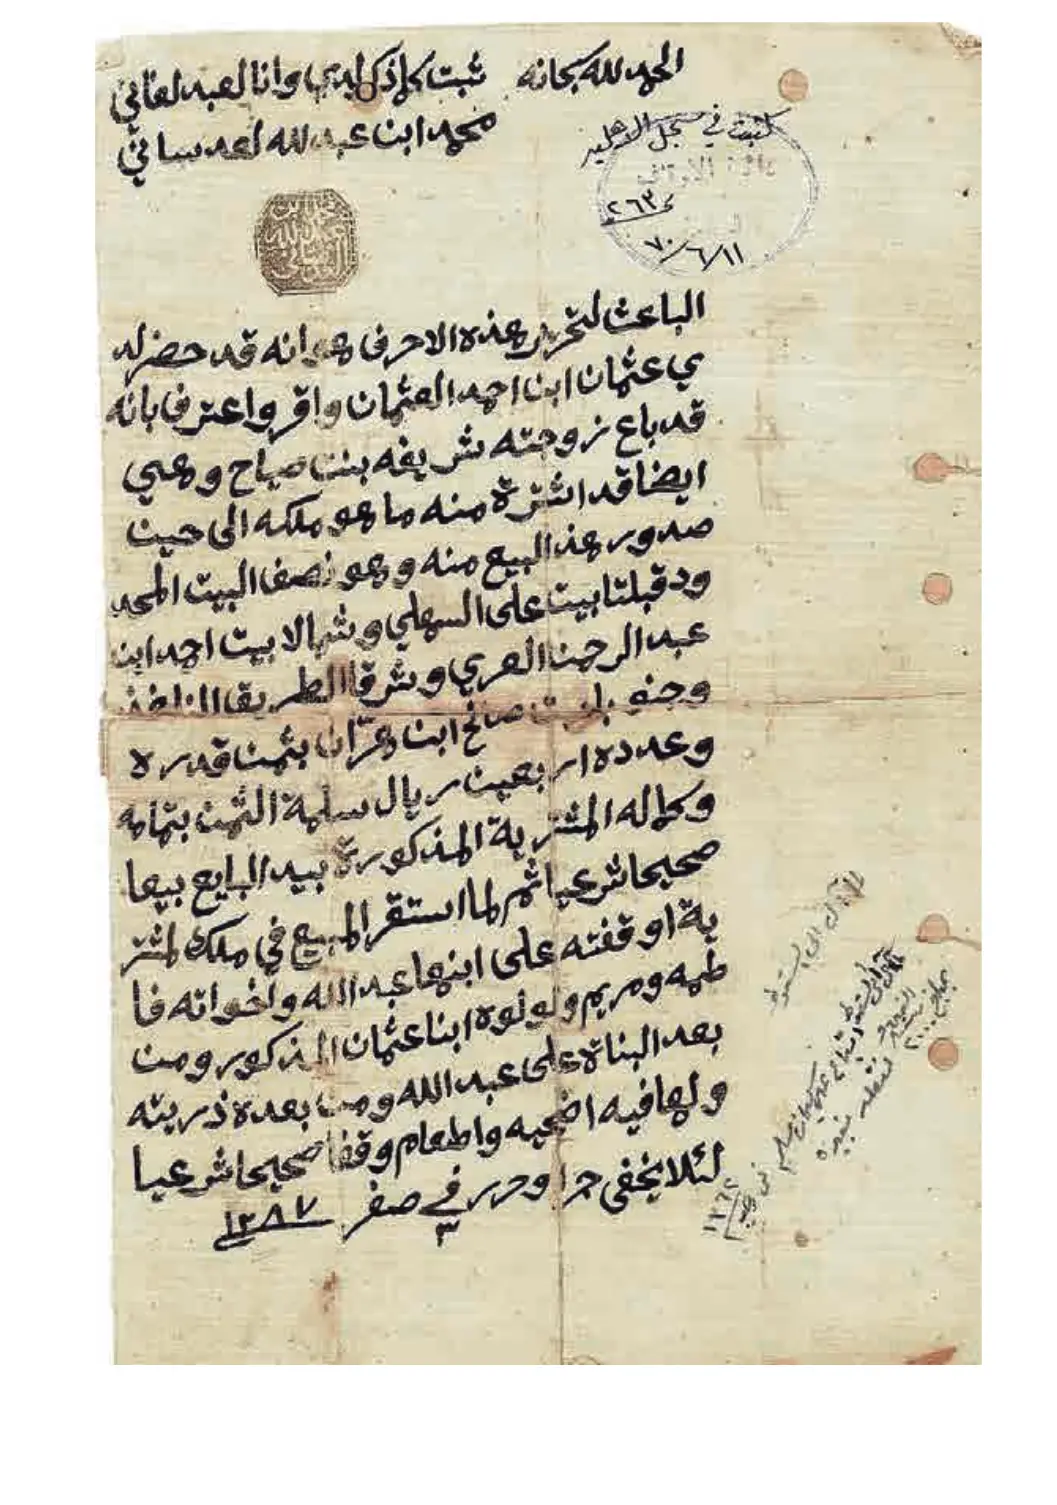 الحمد لله سبحانه
ثبت كلما ذكر لدي وانا لعبد لفاني
محمد ابن عبد لله لعدساني
كتبت في سجل
دائرة الأوقاف
٢٦٣
٧٠/٦/١١
الباعث لتحرير هذه الاحرف هو انه قد حضر لد
ي عثمان ابن احمد العثمان واقر واعترف بانه
قد باع زوجته شريفه بنت صياح وهي
ايضا قد اشترة منه ما هو ملكه الى حين
صدور هذ البيع منه وهو نصف البيت المحد
ود قبلتا بيت على السهلي وشمالا بيت احمد ابن
عبد الرحمن العري وشرقا الطريق النافذ
وجنوبا بيت صالح ابن بثمن قدره
وعدده اربعين ريال سلمة الثمن بتمامه
وكماله المشترية المذكورة بيد البايع بيعا
صحيحا شرعيا ثم لما استقر المبيع في ملك لمشتر
ية اوقفته على ابنها عبد الله واخواته فا
طمه ومريم ولولوه ابنا عثمان المذكور ومن
بعد البناة على عبد الله ومن بعده ذريته
ولها فيه اضحيه واطعام وقفا صحيحا شرعيا
لئلا يخفى جرا وحرر في ٣ صفر ١٢٨٧